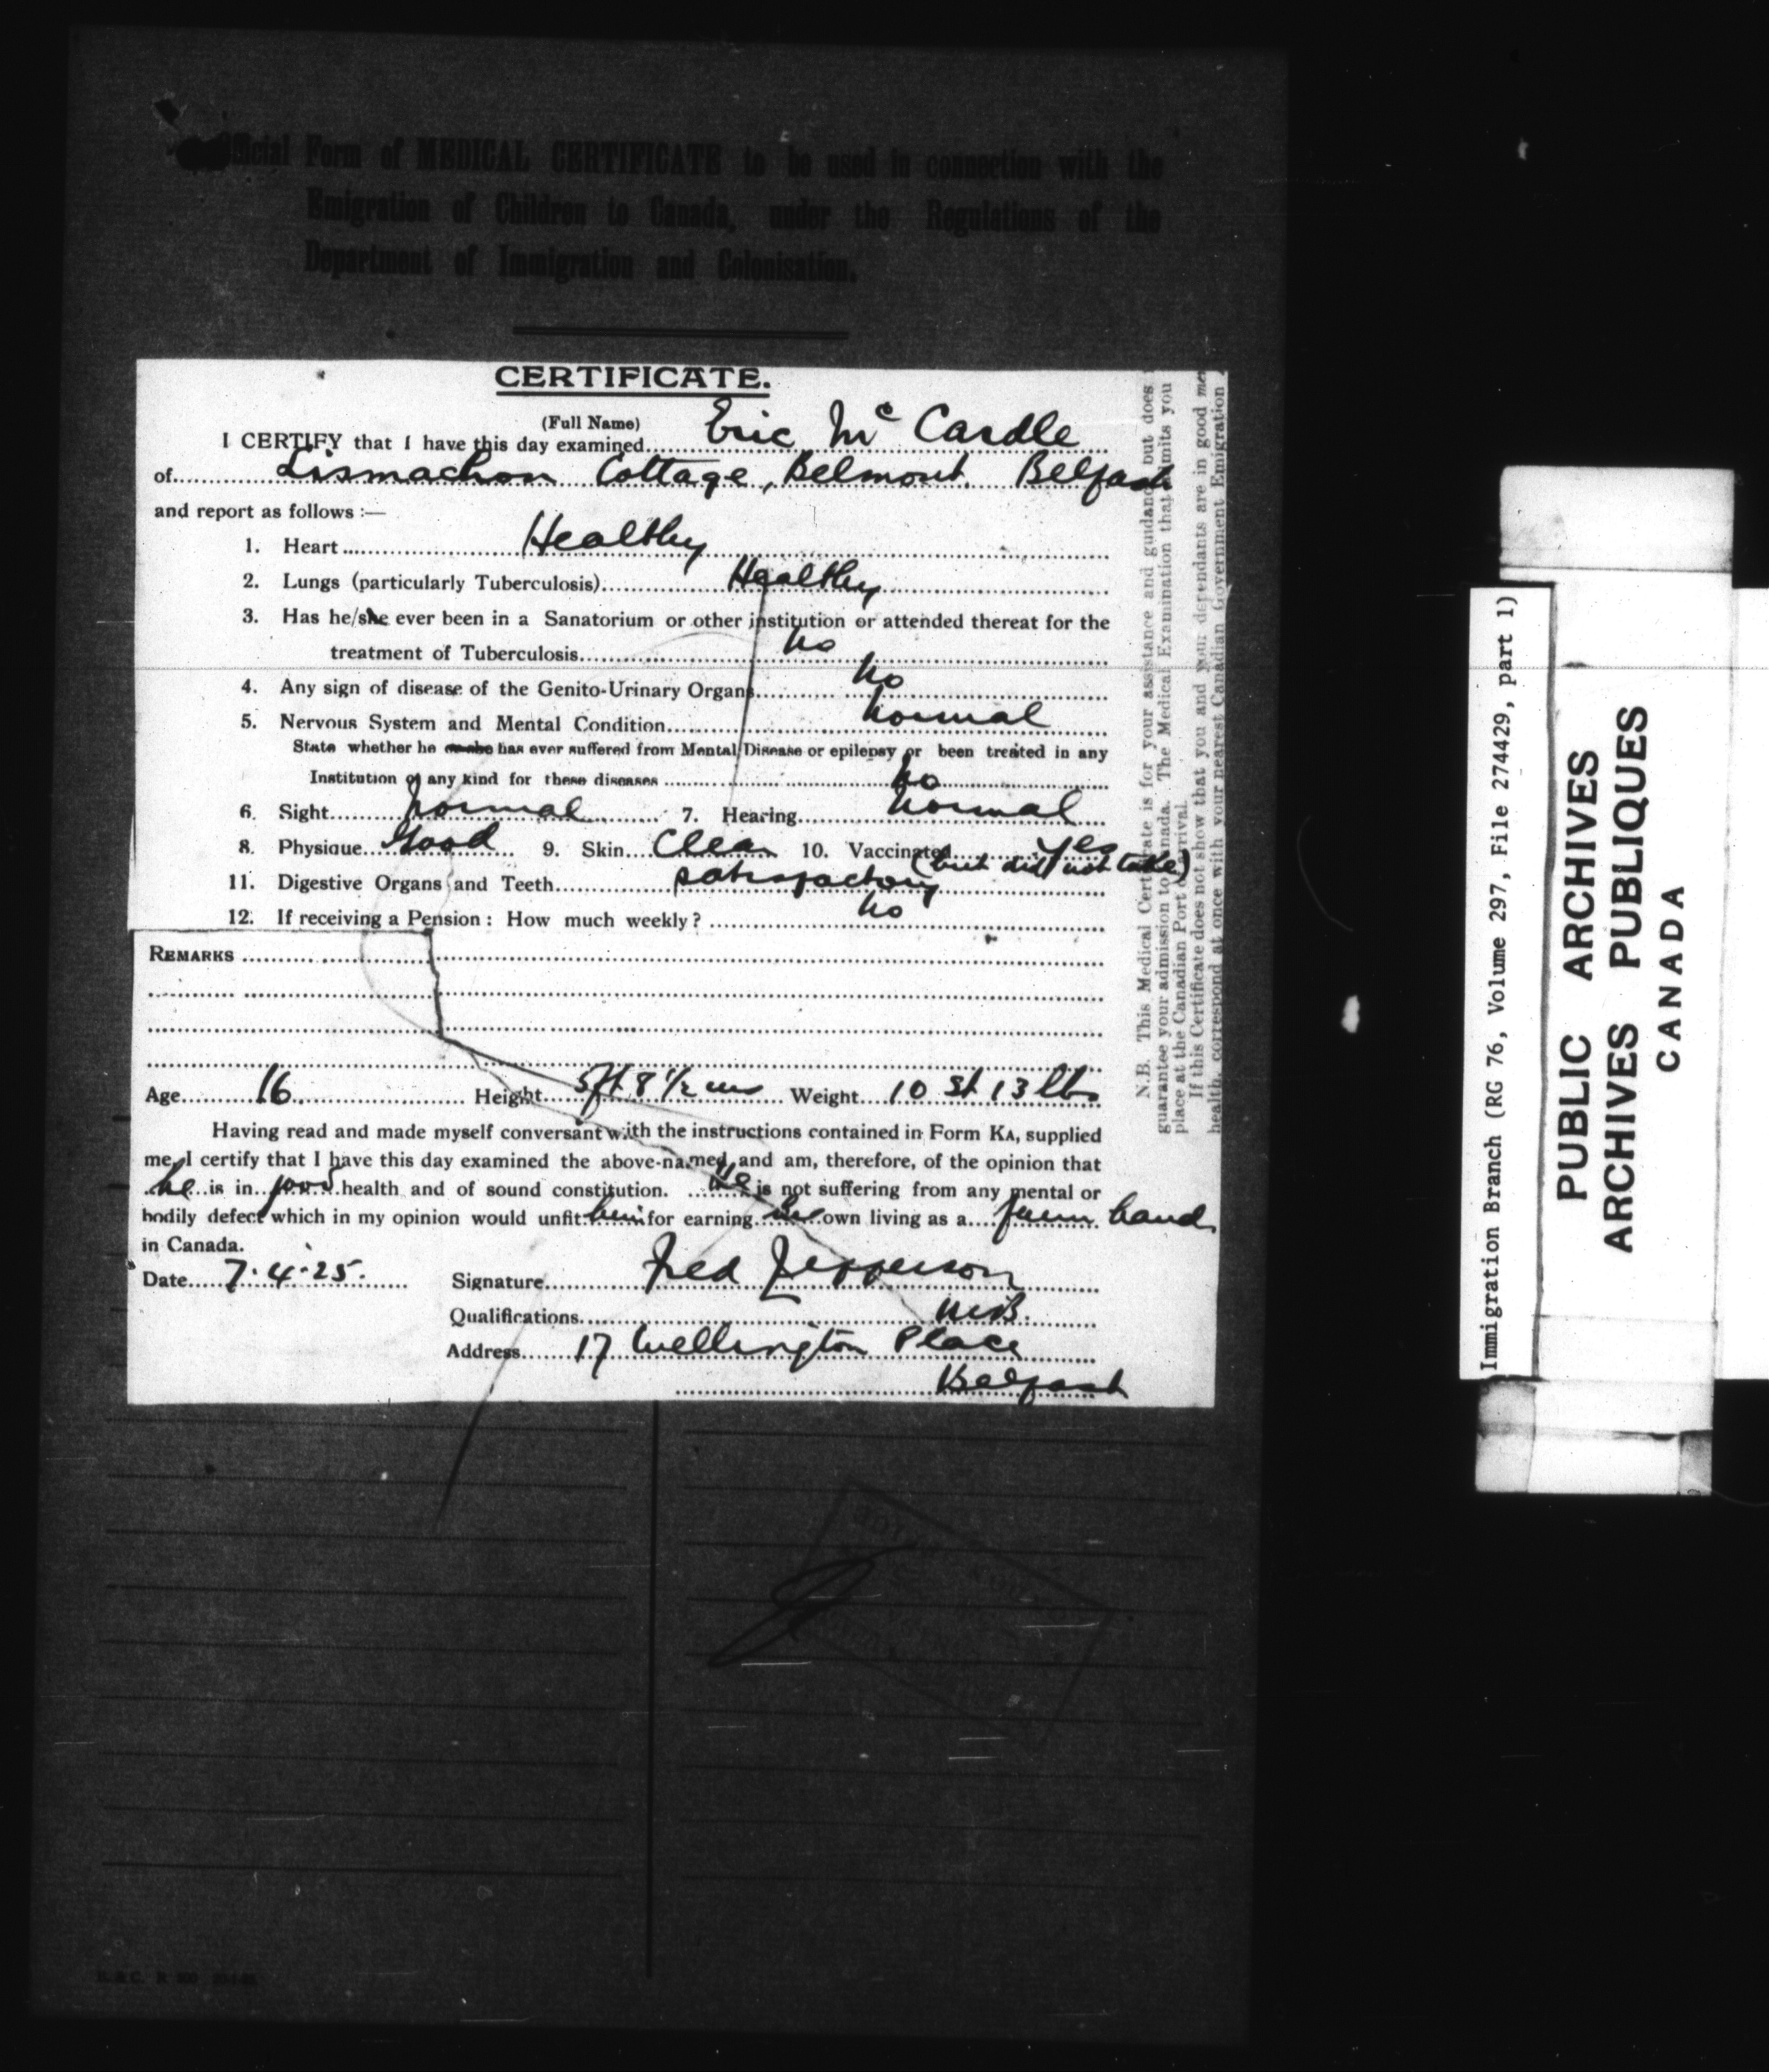 Official Form of MEDICAL CERTIFICATE to be used in connection with the
Emigration of Children to Canada, under the Regulations of the
Department of Immigration and Colonisation.
CERTIFICATE.
(Full Name)
I CERTIFY that I have this day examined Eric Mc Cardle
of Lismachon Cottage, Belmont. Belfast
and report as follows :—
1. Heart Healthy
2. Lungs (particularly Tuberculosis) Healthy
3. Has he/she ever been in a Sanatorium or other institution or attended thereat for the
treatment of Tuberculosis No
4. Any sign of disease of the Genito-Urinary Organs No
5. Nervous System and Mental Condition Normal
State whether he or she has ever suffered from Mental Disease or epilepsy or been treated in any
Institution of any kind for these diseases No
6. Sight Normal 7. Hearing Normal
8. Physique Good 9. Skin Clear 10. Vaccinated Yes
(but did not take)
11. Digestive Organs and Teeth satisfactory
12. If receiving a Pension : How much weekly ? No
REMARKS
Age 16. Height 5ft 8 1/2 ins Weight 10 st 13 lbs
Having read and made myself conversant with the instructions contained in Form KA, supplied
me, I certify that I have this day examined the above-named, and am, therefore, of the opinion that
he is in good health and of sound constitution. He is not suffering from any mental or
bodily defect which in my opinion would unfit him for earning his own living as a farm hand
in Canada.
Date 7.4.25. Signature Fred Jefferson
Qualifications M.B.
Address 17 Wellington Place
Belfast
N.B. This Medical Certificate is for your assistance and guidance but does
guarantee your admission to Canada. The Medical Examination that admits you
place at the Canadian Port of arrival.
If this Certificate does not show that you and your dependants are in good
health, correspond at once with your nearest Canadian Government Emigration
Immigration Branch (RG 76, Volume 297, File 274429, part 1)
PUBLIC ARCHIVES
ARCHIVES PUBLIQUES
CANADA